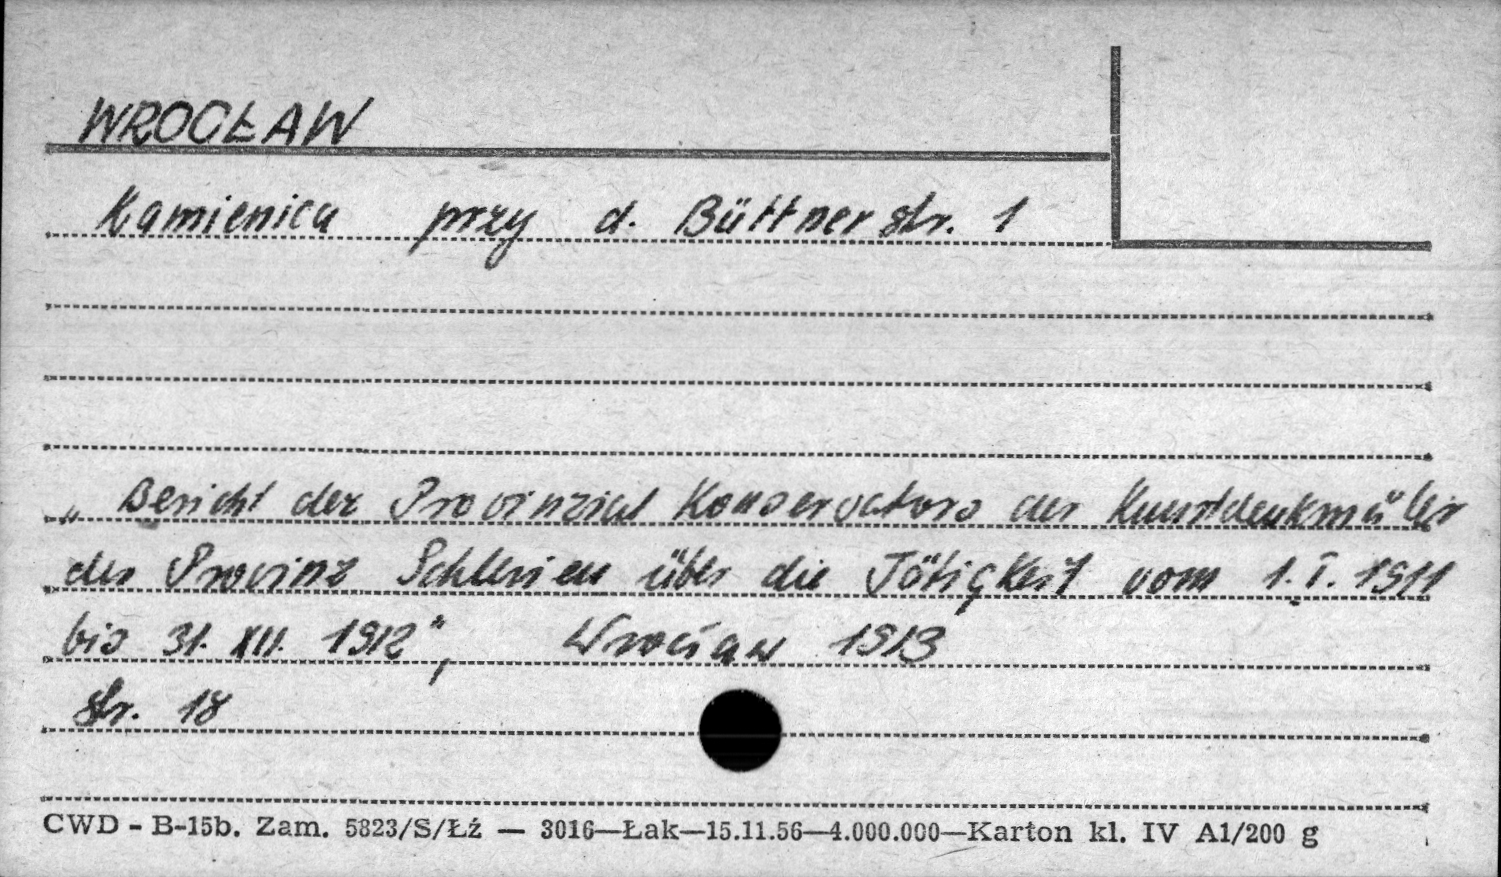 WROCŁAW
Kamienica przy d. Büttner str. 1
„Bericht der Provinzial Konservators der Kunstdenkmäler
der Provinz Schlesien über die Tätigkeit vom 1. I. 1911
bis 31. XII. 1912", Wrocław 1913
str. 18
CWD - B-15b. Zam. 5823/S/Łź — 3016—Łak—15.11.56—4.000.000—Karton kl. IV A1/200 g